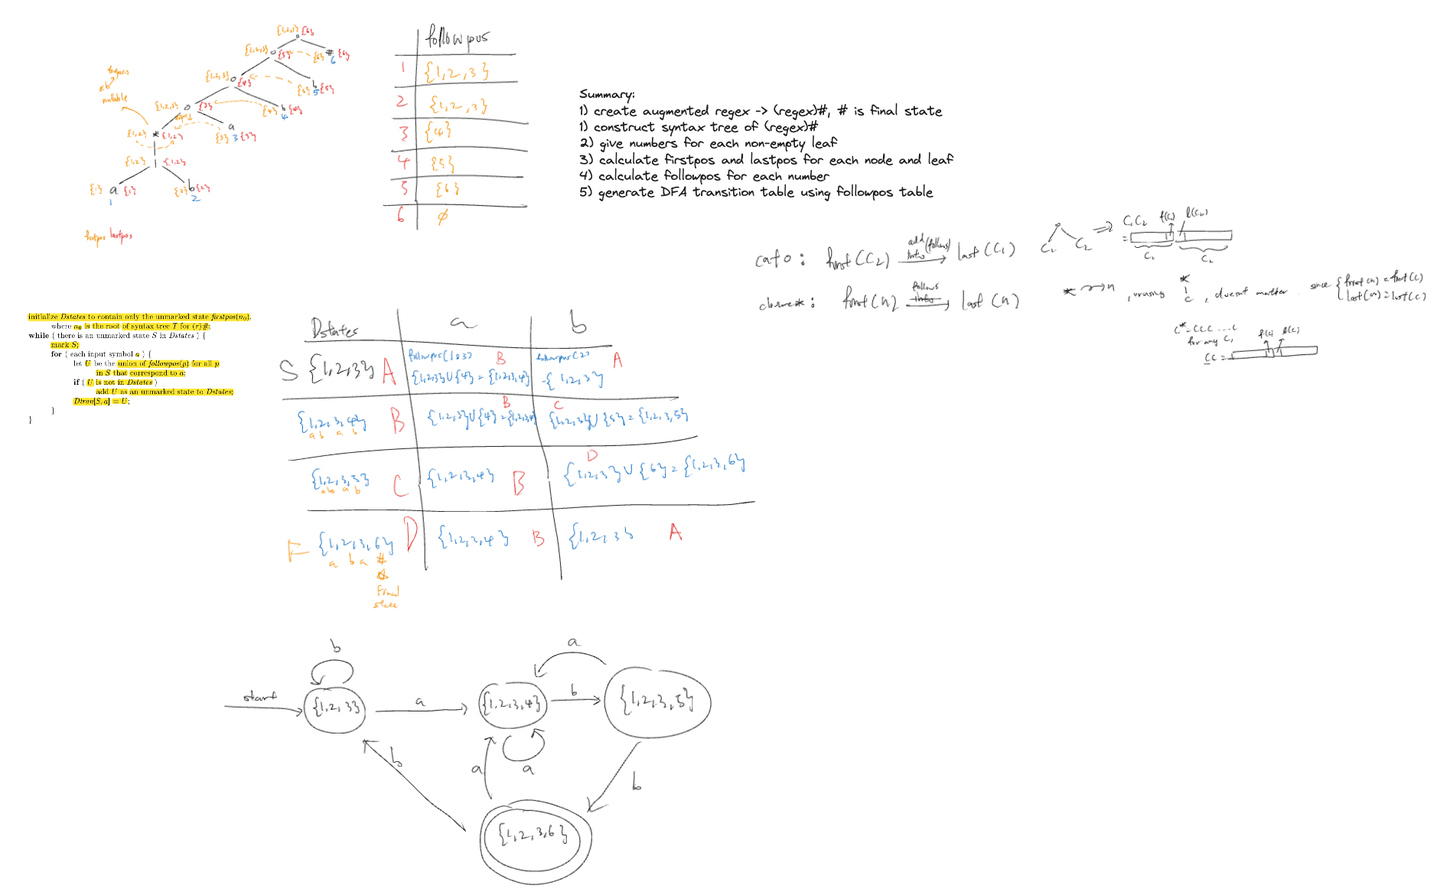 {1,2,3} {6}
{1,2,3} {5} {6} # {6}
6
{1,2,3} {4} {5} b {5}
5
{1,2,3} {3} {4} b {4}
4
nullable
{1,2} * {1,2} {3} a {3}
3
{1,2} | {1,2}
{1} a {1} {2} b {2}
1 2
firstpos lastpos
followpos
1 {1,2,3}
2 {1,2,3}
3 {4}
4 {5}
5 {6}
6 ∅
Summary:
1) create augmented regex -> (regex)#, # is final state
1) construct syntax tree of (regex)#
2) give numbers for each non-empty leaf
3) calculate firstpos and lastpos for each node and leaf
4) calculate followpos for each number
5) generate DFA transition table using followpos table
cato: first(C2) add (follows) into last(C1)
C1 C2 ⇒ C1C2 f(C2) l(C1)
= C1 C2
closure*: first(n) follows into last(n)
* ~> n, using * C, doesnt matter. since { first(n) = first(C)
last(n) = last(C)
C* = CCC ... C
for any C,
CC = f(C) l(C)
initialize Dstates to contain only the unmarked state firstpos(n0),
where n0 is the root of syntax tree T for (r)#;
while ( there is an unmarked state S in Dstates ) {
mark S;
for ( each input symbol a ) {
let U be the union of followpos(p) for all p
in S that correspond to a;
if ( U is not in Dstates )
add U as an unmarked state to Dstates;
Dtran[S, a] = U;
}
}
Dstates a b
S {1,2,3} A followpos(1,3) B followpos(2) A
{1,2,3} ∪ {4} = {1,2,3,4} {1,2,3}
{1,2,3,4} B {1,2,3} ∪ {4} = {1,2,3,4} B {1,2,3} ∪ {5} = {1,2,3,5} C
a b a b
{1,2,3,5} C {1,2,3,4} B {1,2,3} ∪ {6} = {1,2,3,6} D
a b a b
F {1,2,3,6} D {1,2,3,4} B {1,2,3} A
a b a #
Final
state
b
start {1,2,3} a {1,2,3,4} b {1,2,3,5}
a
a
b a b
{1,2,3,6}